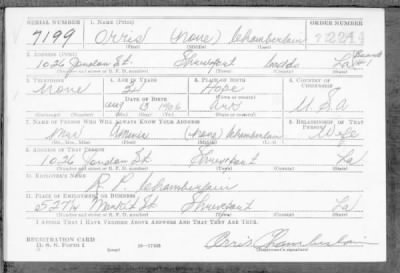 SERIAL NUMBER 1. NAME (Print) ORDER NUMBER
7199 Orris (None) Chamberlain
(First) (Middle) (Last)
2. ADDRESS (Print)
1026 Jordan St. Shreveport Caddo La
(Number and street or R. F. D. number) (Town) (County) (State)
3. TELEPHONE 4. AGE IN YEARS 5. PLACE OF BIRTH 6. COUNTRY OF CITIZENSHIP
None 34 Hope
DATE OF BIRTH
Aug 13 1906 Ark U.S.A
7. NAME OF PERSON WHO WILL ALWAYS KNOW YOUR ADDRESS 8. RELATIONSHIP OF THAT PERSON
Mrs (None) Chamberlain Wife
(Mr., Mrs., Miss) (First) (Middle) (Last)
9. ADDRESS OF THAT PERSON
1026 Jordan St Shreveport La
(Number and street or R. F. D. number) (Town) (County) (State)
10. EMPLOYER'S NAME
R. P. Chamberlain
11. PLACE OF EMPLOYMENT OR BUSINESS
527½ Market St Shreveport La
(Number and street or R. F. D. number) (Town) (County) (State)
I AFFIRM THAT I HAVE VERIFIED ABOVE ANSWERS AND THAT THEY ARE TRUE.
REGISTRATION CARD
D. S. S. FORM 1 16—17105
Orris Chamberlain
(Registrant's signature)